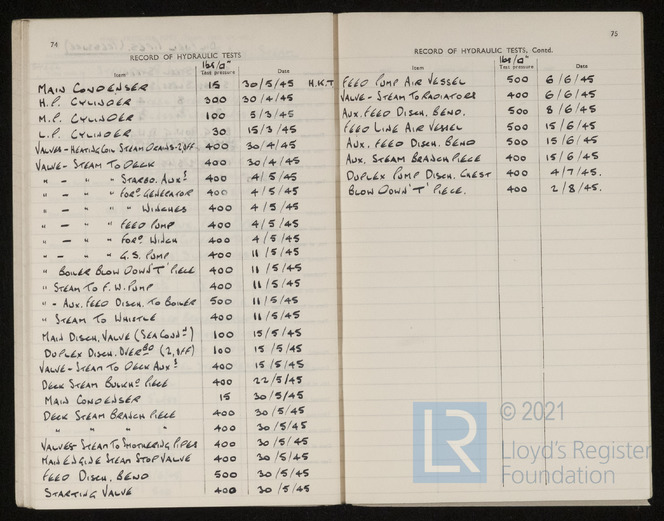 74
RECORD OF HYDRAULIC TESTS
lbs/□"
Item Test pressure Date
MAIN CONDENSER 15 30/5/45 H.K.T
H.P. CYLINDER 300 30/4/45
M.P. CYLINDER 100 5/3/45
L.P. CYLINDER 30 15/3/45
VALVES-HEATING COIL STEAM DRAINS-2,OFF. 400 30/4/45
VALVE-STEAM TO DECK 400 30/4/45
" - " " STARBD. AUXS 400 4/5/45
" - " " FORD GENERATOR 400 4/5/45
" - " " WINCHES 400 4/5/45
" - " " FEED PUMP 400 4/5/45
" - " " FORD WINCH 400 4/5/45
" - " " G.S. PUMP 400 11/5/45
" BOILER BLOW DOWN 'T' PIECE 400 11/5/45
" STEAM TO F.W. PUMP 400 11/5/45
" - AUX. FEED DISCH. TO BOILER 500 11/5/45
" STEAM TO WHISTLE 400 11/5/45
MAIN DISCH. VALVE (SEA CONNN) 100 15/5/45
DUPLEX DISCH. OVERBD (2,OFF) 100 15/5/45
VALVE-STEAM TO DECK AUXS 400 15/5/45
DECK STEAM BULKHD PIECE 400 22/5/45
MAIN CONDENSER 15 30/5/45
DECK STEAM BRANCH PIECE 400 30/5/45
" " " " 400 30/5/45
VALVES-STEAM TO SMOTHERING PIPES 400 30/5/45
MAIN ENGINE STEAM STOP VALVE 400 30/5/45
FEED DISCH. BEND 500 30/5/45
STARTING VALVE 400 30/5/45
75
RECORD OF HYDRAULIC TESTS, Contd.
lbs/□"
Item Test pressure Date
FEED PUMP AIR VESSEL 500 6/6/45
VALVE-STEAM TO RADIATORS 400 6/6/45
AUX. FEED DISCH. BEND. 500 8/6/45
FEED LINE AIR VESSEL 500 15/6/45
AUX. FEED DISCH. BEND 500 15/6/45
AUX. STEAM BRANCH PIECE 400 15/6/45
DUPLEX PUMP DISCH. CHEST 400 4/7/45.
BLOW DOWN 'T' PIECE. 400 2/8/45.
LR
© 2021
Lloyd's Register
Foundation